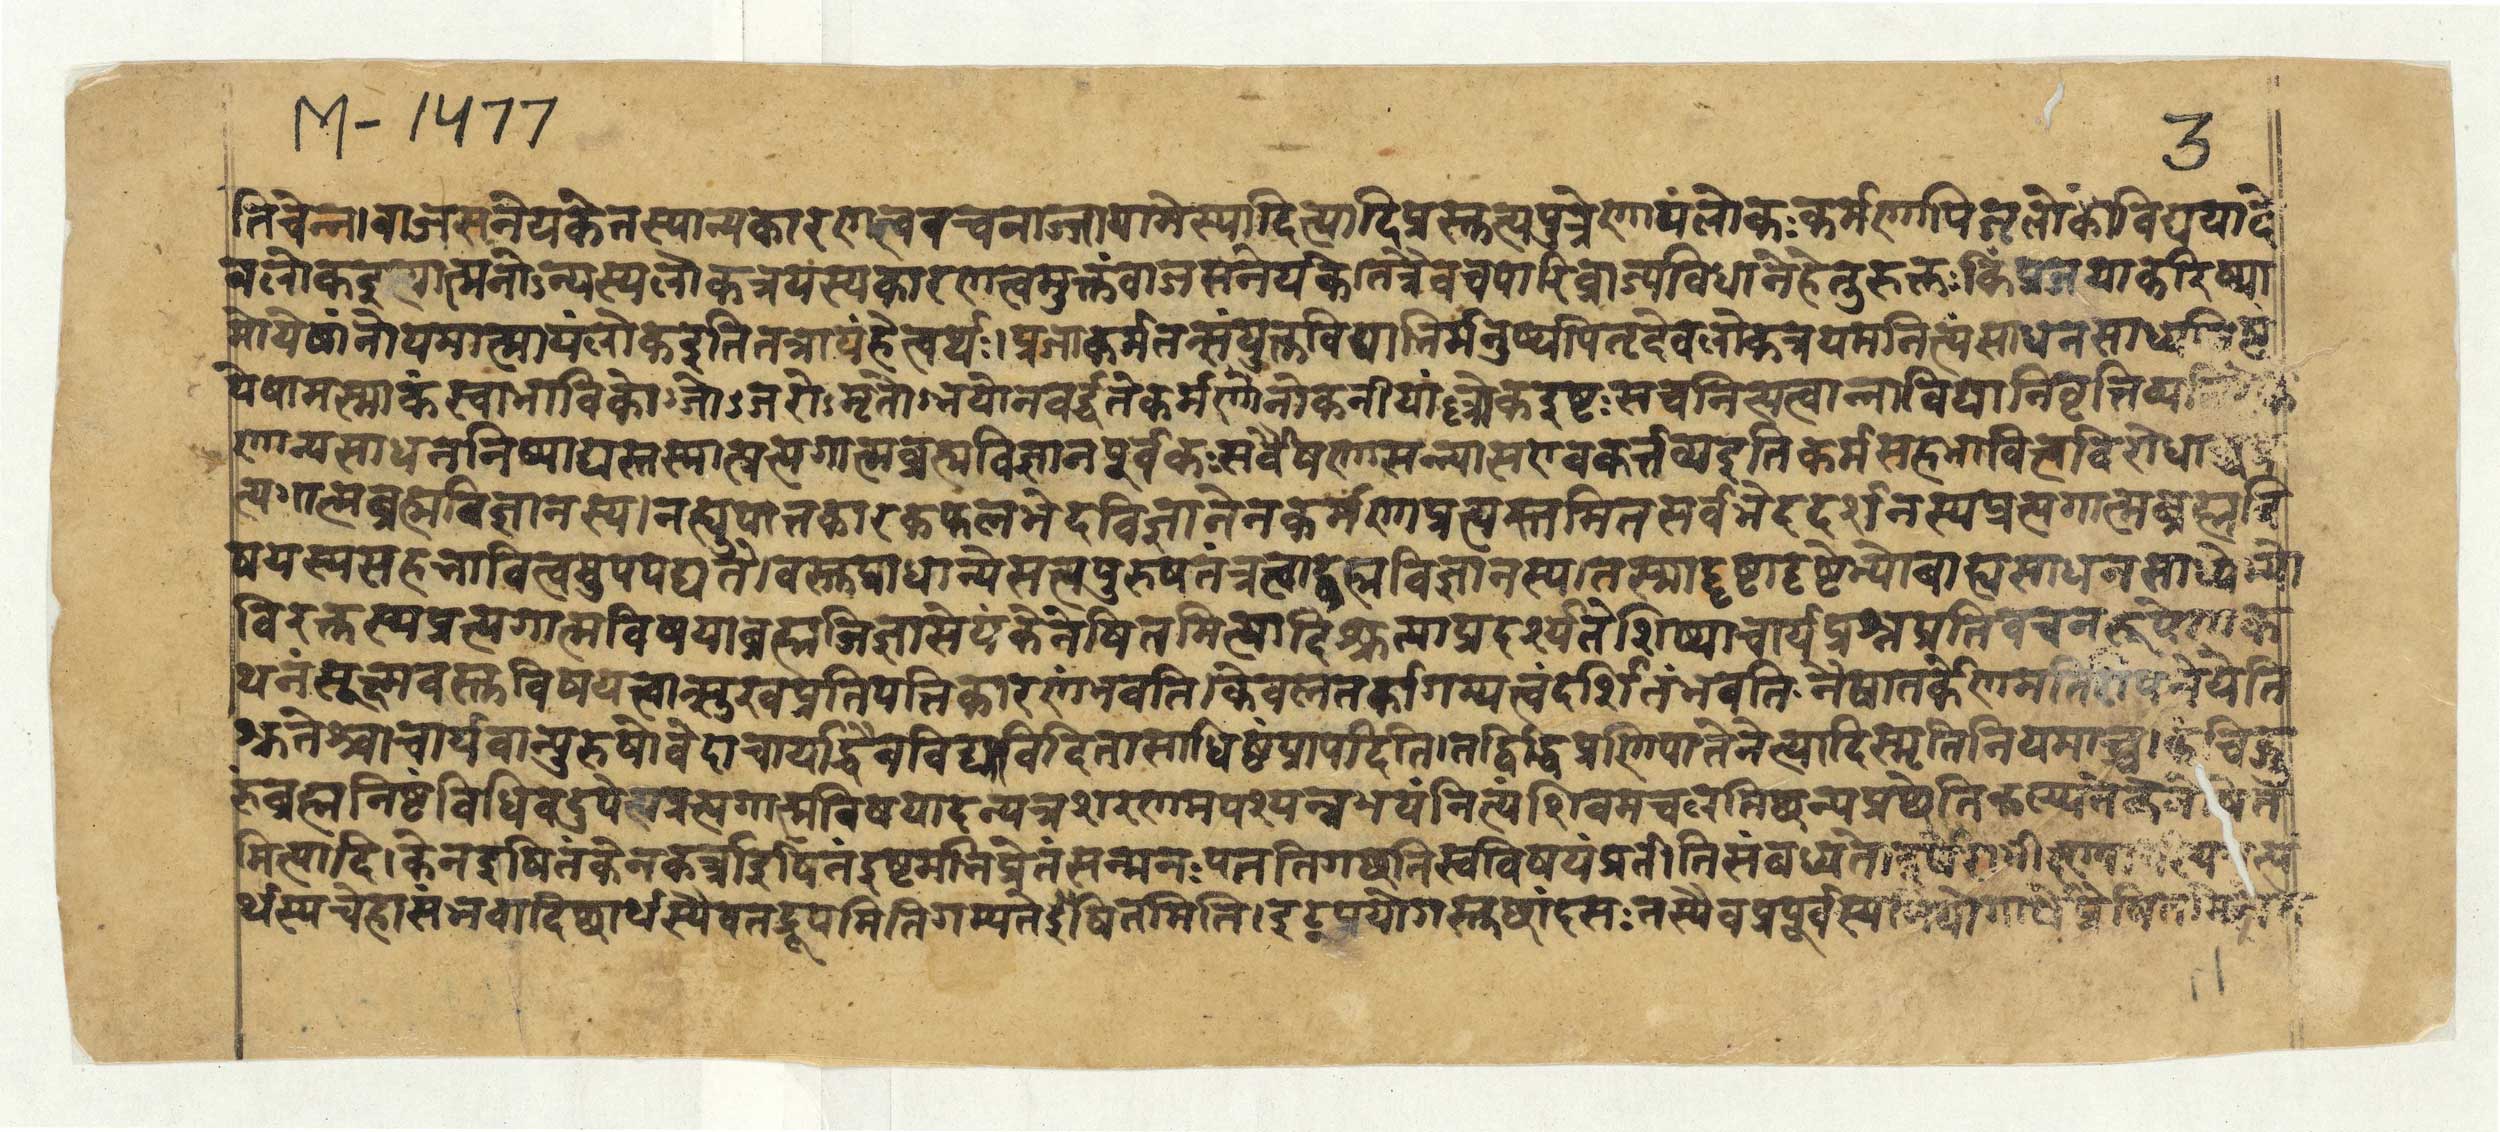 M-1477
3
तिचेन्न।वाजसनेयकेतस्यान्यकारणत्ववचनाज्जायामेस्यादित्यादिप्रस्तुत्यपुत्रेणायंलोकःकर्मणापितृलोकोविद्ययादे
वलोकइत्यात्मनोऽन्यस्यलोकत्रयस्यकारणत्वमुक्तंवाजसनेयकेतत्रैवचपारिव्राज्यविधानेहेतुरुक्तःकिंप्रजयाकरिष्या
मोयेषांनोयमात्मायंलोकइतितत्रायंहेत्वर्थः।प्रजाकर्मतत्संयुक्तविद्याभिर्मनुष्यपितृदेवलोकत्रयमनित्यंसाधनसाध्य
येषामस्माकंस्वाभाविकोऽजोऽजरोऽमृतोऽभयोनवर्द्धतेकर्मणैनोकनीयांल्लोकइष्टःसचनित्यत्वान्नाविद्यानिवृत्तिव्य
णान्यसाधननिष्पाद्यस्तस्मात्प्रत्यगात्मब्रह्मविज्ञानपूर्वकःसर्वैषणासन्न्यासएवकर्त्तव्यइतिकर्मसहभावित्वविरोधा
त्यगात्मब्रह्मविज्ञानस्य।नह्युपात्तकारकफलभेदविज्ञानेनकर्मणाप्रत्यस्तमितसर्वभेददर्शनस्यप्रत्यगात्मब्रह्मवि
षयस्यसहभावित्वमुपपद्यते।वस्तुप्राधान्येसत्यपुरुषतंत्रत्वाद्ब्रह्मविज्ञानस्य।तस्माद्दृष्टादृष्टेभ्योबाह्यसाधनसाध्येभ्यो
विरक्तस्यप्रत्यगात्मविषयाब्रह्मजिज्ञासेयंकेनेषितमित्यादिश्रुत्याप्रदर्श्यतेशिष्याचार्यप्रश्नप्रतिवचनरूपेणक
थनंसूक्ष्मवस्तुविषयत्वात्सुखप्रतिपत्तिकारणंभवति।केवलतर्कागम्यत्वंदर्शितंभवति।नैषातर्केणमतिरापनेयेति
श्रुतेश्चाचार्यवान्पुरुषोवेदाचार्याद्धैवविद्याविदितासाधिष्ठंप्रापदिति।तद्विद्धिप्रणिपातेनेत्यादिस्मृतिनियमाच्च।कश्चिद्गु
रुंब्रह्मनिष्ठंविधिवदुपेत्यप्रत्यगात्मविषयादन्यत्रशरणमपश्यन्नभयंनित्यंशिवमचलमिच्छन्पप्रच्छेतिकल्प्यतेकेनेषित
मित्यादि।केनइषितंकेनकर्त्राइषितंइष्टमभिप्रेतंसन्मनःपततिगच्छतिस्वविषयंप्रतीतिसंबध्यते।इषेराभीक्ष्ण्य
र्थस्यचेहासंभवादिच्छार्थस्यैवैतद्रूपमितिगम्यतेइषितमिति।इट्प्रयोगस्तुछांदसःतस्यैवप्रपूर्वस्य